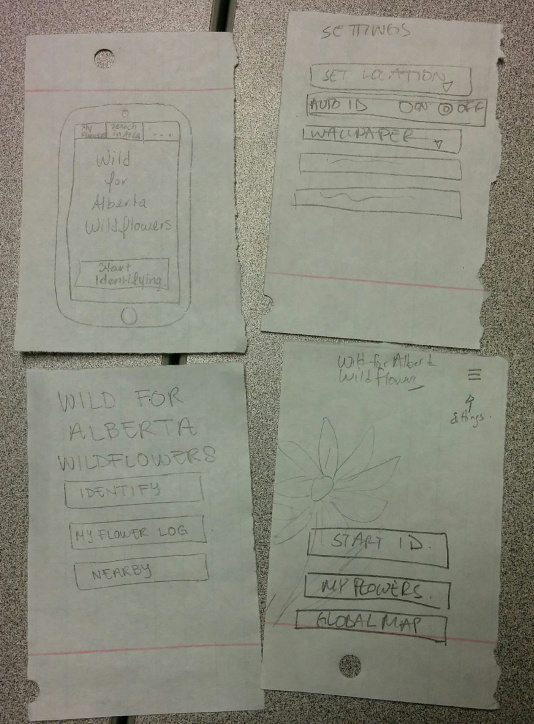 My
Flowers
Search
...
Wild
for
Alberta
Wildflowers
Start
Identifying
SETTINGS
SET LOCATION
AUTO ID ON OFF
WALLPAPER
WILD FOR
ALBERTA
WILDFLOWERS
IDENTIFY
MY FLOWER LOG
NEARBY
for Alberta
Wildflower
START ID.
MY FLOWERS.
GLOBAL MAP